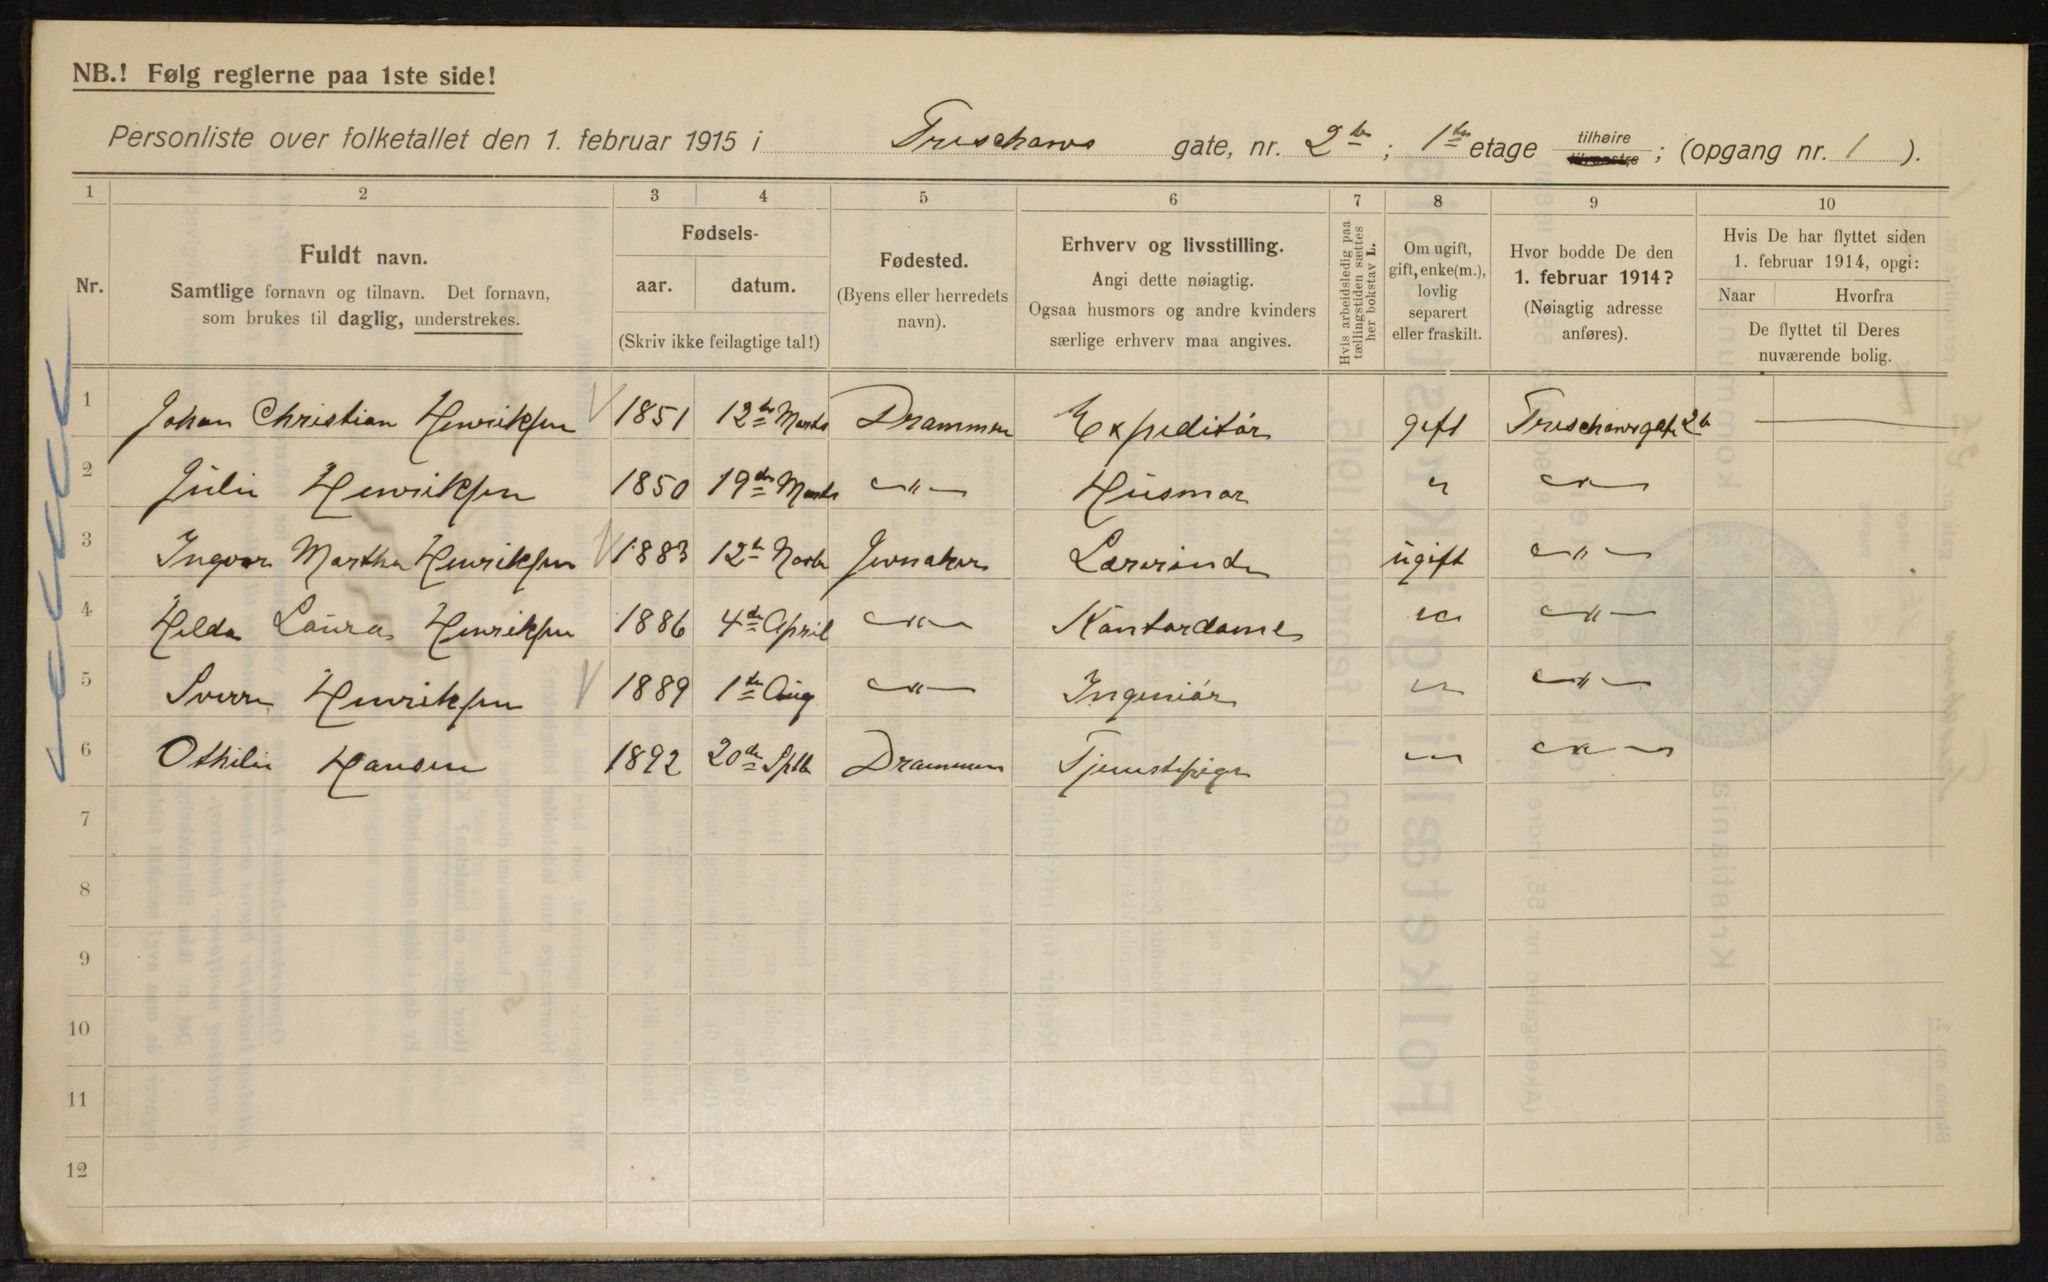 NB.! Følg reglerne paa 1ste side!
Personliste over folketallet den 1. februar 1915 i Treschows gate, nr. 2b ; 1ste etage tilhøire tilvenstre ; (opgang nr. 1 ).
1 2 3 4 5 6 7 8 9 10
Nr.
Fuldt navn.
Samtlige fornavn og tilnavn. Det fornavn,
som brukes til daglig, understrekes.
Fødsels-
aar. datum.
(Skriv ikke feilagtige tal!)
Fødested.
(Byens eller herredets
navn).
Erhverv og livsstilling.
Angi dette nøiagtig.
Ogsaa husmors og andre kvinders
særlige erhverv maa angives.
Hvis arbeidsledig paa
tællingstiden sættes
her bokstav L.
Om ugift,
gift, enke(m.),
lovlig
separert
eller fraskilt.
Hvor bodde De den
1. februar 1914?
(Nøiagtig adresse
anføres).
Hvis De har flyttet siden
1. februar 1914, opgi:
Naar Hvorfra
De flyttet til Deres
nuværende bolig.
1 Johan Christian Henriksen 1851 12te Marts Drammen Expeditør gift Treschowsgate 2b
2 Julie Henriksen 1850 19de Marts —"— Husmor " —"—
3 Martha Henriksen 1883 12te Jevnaker Lærerinde ugift —"—
4 Hilda Laura Henriksen 1886 4de April —"— Kontordame " —"—
5 Sverre Henriksen 1889 1ste Aug —"— Ingeniør " —"—
6 Othilie Hansen 1892 20de Septb Drammen Tjenestepige " —"—
7
8
9
10
11
12